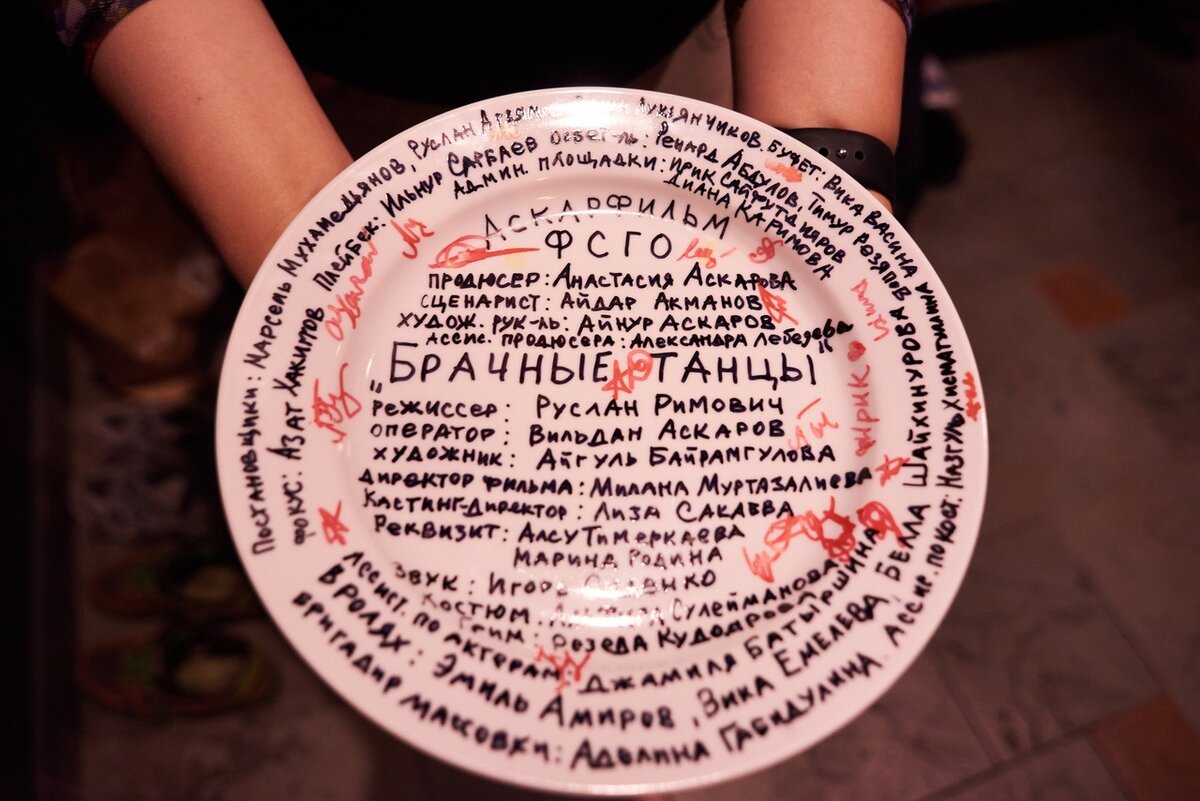 Постановщики: Марсель Мухамедьянов, Руслан Лукьянчиков, Буфет: Вика Васина
Фокус: Азат Хакимов Плейбек: Ильнур Сарбаев Осветл-ль: Ренард Абдулов, Тимур Резяпов
Админ. площадки: Ирик Сайфутдияров
Диана Каримова
Аскарфильм
ФСГО
продюсер: Анастасия Аскарова
сценарист: Айдар Акманов
худож. рук-ль: Айнур Аскаров
Ассис. продюсера: Александра Лебедева
„Брачные танцы“
режиссер: Руслан Римович
оператор: Вильдан Аскаров
художник: Айгуль Байрамгулова
директор фильма: Милана Муртазалиева
Кастинг-директор: Лиза Сакаева
Реквизит: Алсу Тимеркаева
Марина Родина
Звук: Игорь
Костюм Сулейманова
Грим: Розеда
Ассист. по актерам: Джамиля Батыршина
В ролях: Эмиль Амиров, Зика Емелева, Белла Шайхинурова
Бригадир массовки: Аделина Габидулина Ассис. по кост: Назгуль Хисматуллина
ирик